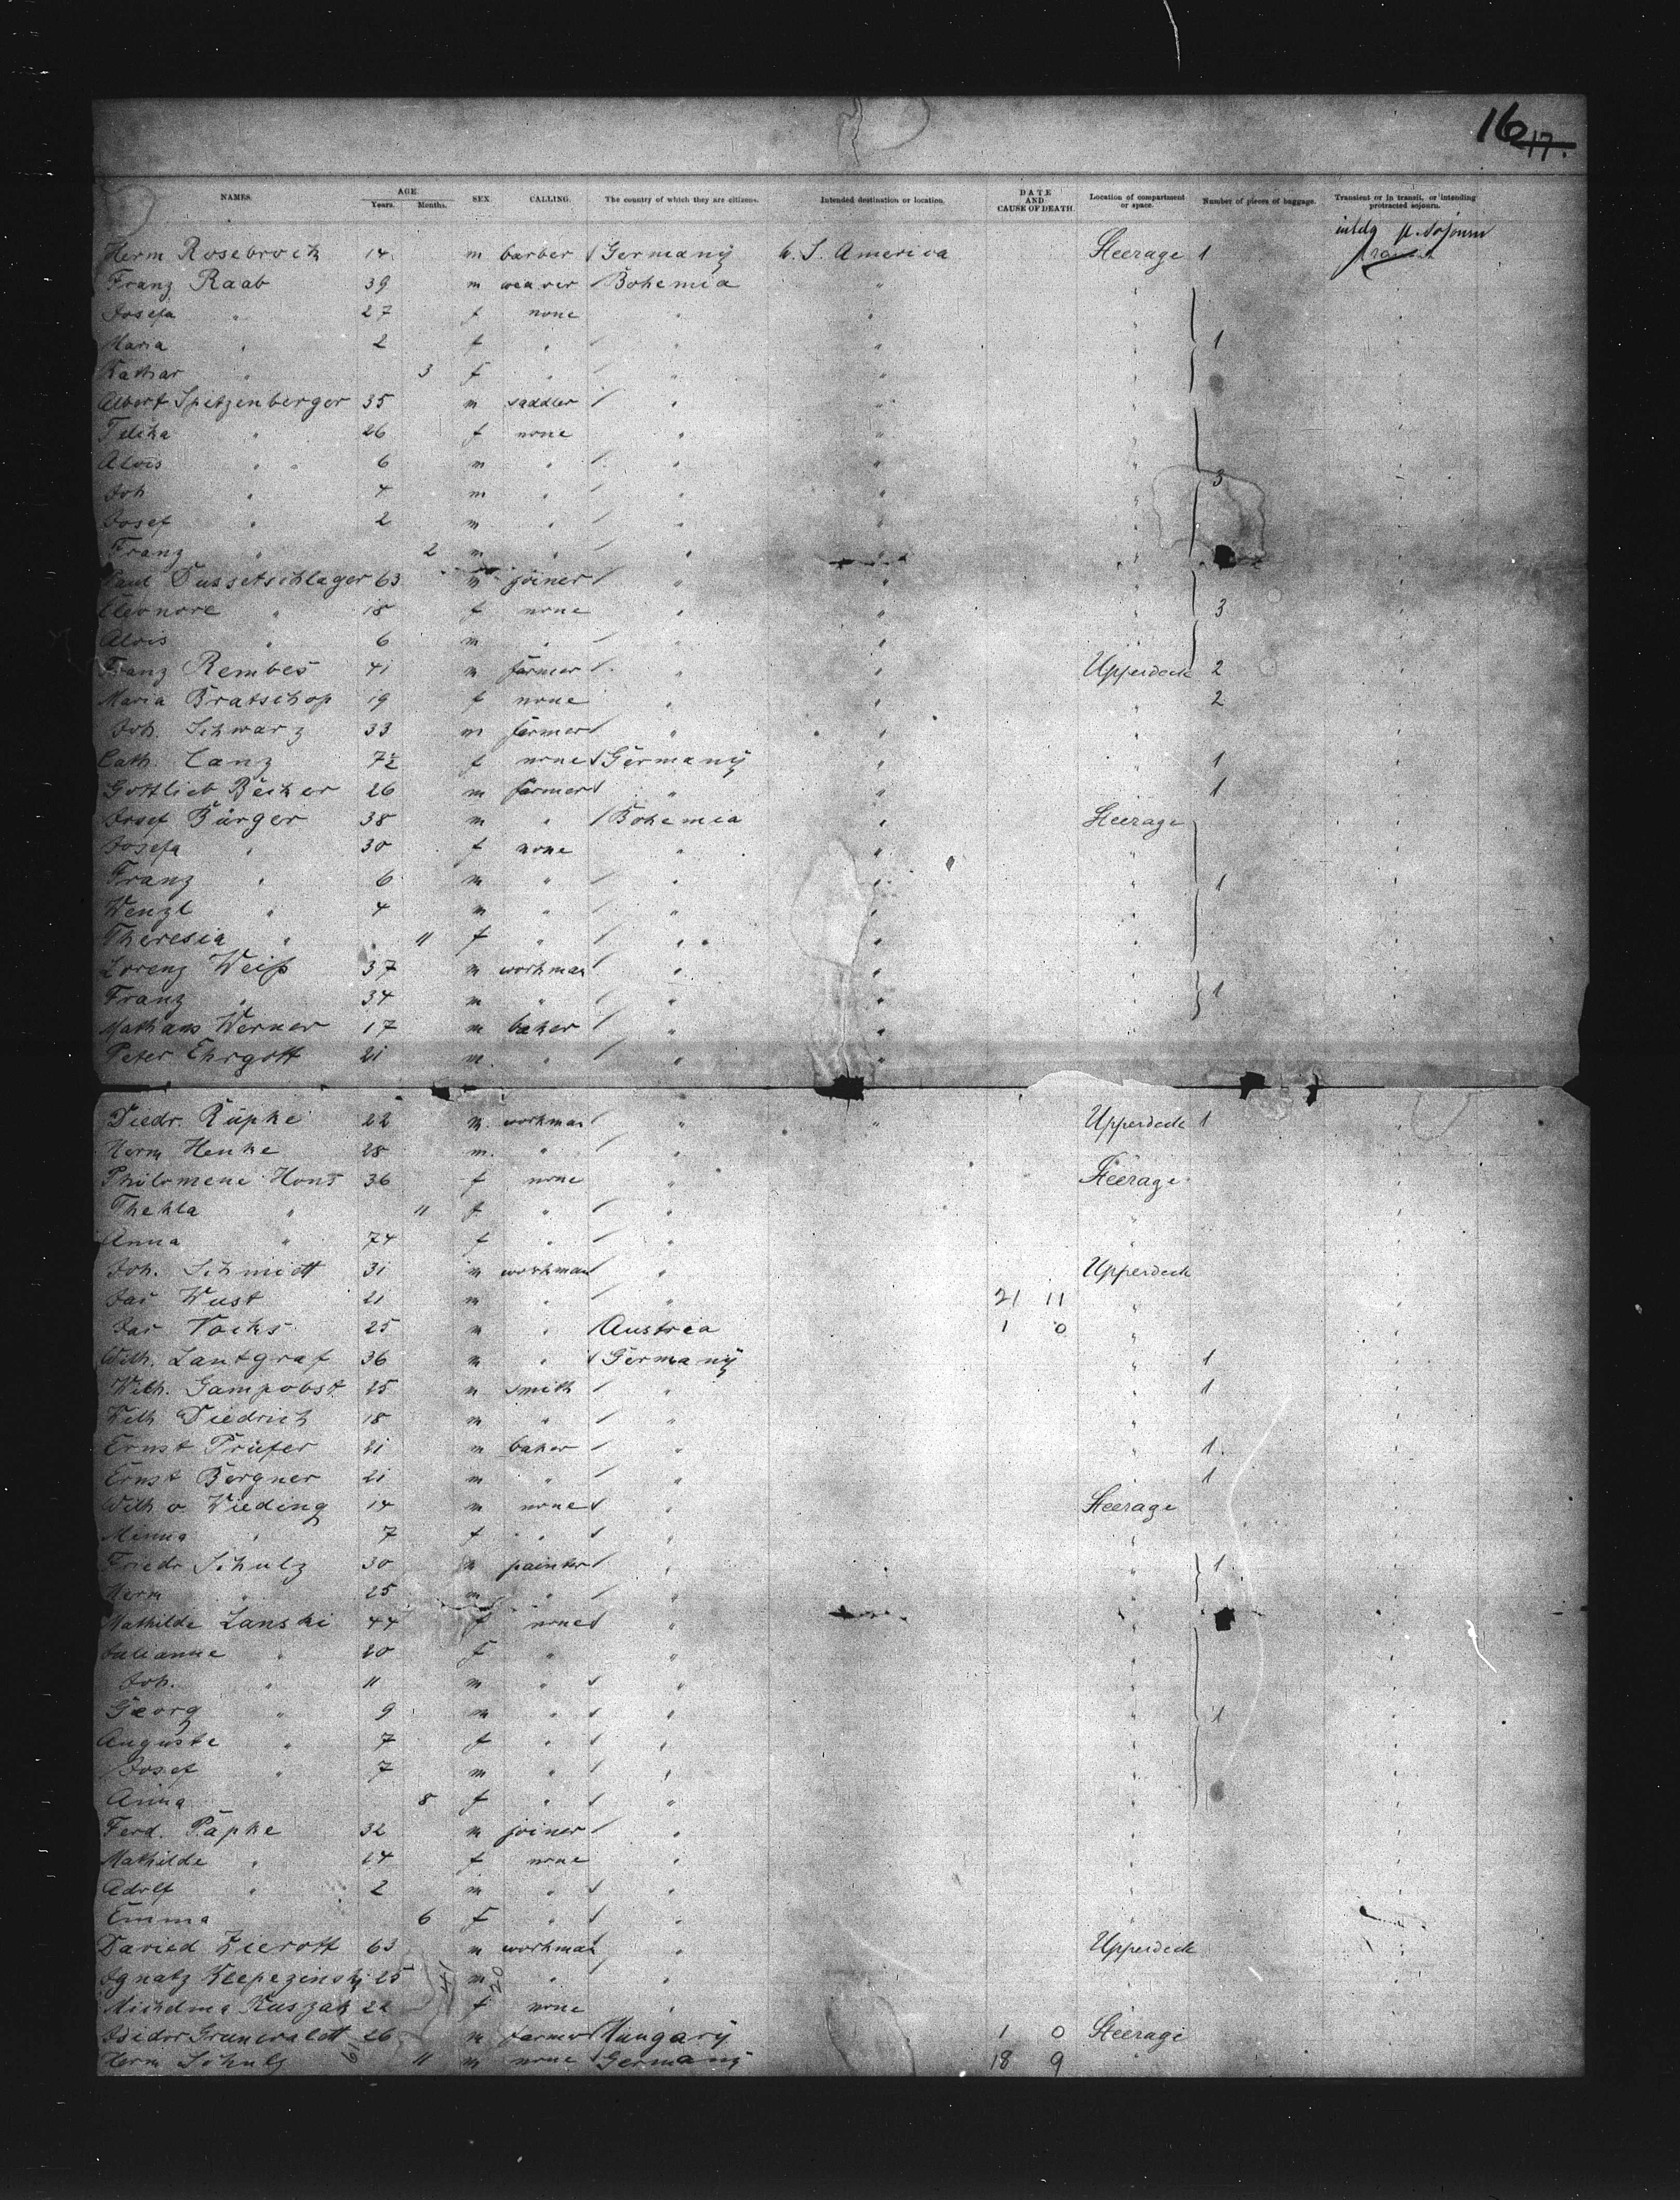 16 17.
NAMES. AGE. Years. Months. SEX. CALLING. The country of which they are citizens. Intended destination or location. DATE AND CAUSE OF DEATH. Location of compartment or space. Number of pieces of baggage. Transient or in transit, or intending protracted sojourn.
intdg p. sojourn
Herm Rosebrock 14 m barber Germany U. S. America Steerage 1
Franz Raab 39 m weaver Bohemia "
Josefa " 27 f none " "
Maria " 2 f " " " 1
Kathar " 3 f " " "
Albert Spetzenberger 35 m saddler " "
" 26 f none " "
Alois " 6 m " " "
Joh " 4 m " " " 3
Josef " 2 m " " "
Franz " 2 m " " "
Paul Dussetschlager 63 m joiner " "
Eleonore " 18 f none " " 3
Alois " 6 m " " "
Franz Rembes 41 m farmer " " Upperdeck 2
Maria Bratschop 19 f none " " " 2
Joh. Schwarz 33 m farmer " " "
Cath. Canz f none Germany " " 1
Gottlieb Becker 26 m farmer " " " 1
Josef Bürger 38 m " Bohemia " Steerage
Josefa " 30 f none " " "
Franz " 6 m " " " " 1
Wenzl " 4 m " " " "
Theresia " 11 f " " " "
Lorenz Weiß 37 m workman " " "
Franz " 34 m " " " " 1
Mathaus Werner 17 m baker " " "
Peter Ehrgott 21 m " " "
Diedr. Rüpke 22 m workman " " Upperdeck 1
Herm Henke 28 m " "
Philomene Hons 36 f none " Steerage
Thekla " 11 f " " "
Anna " 74 f " " "
Joh. Schmidt 31 m workman " Upperdeck
Jac Wust 21 m " " 21 11 "
Jac Vochs 25 m " Austria 1 0 "
Wilh. Lantgraf 36 m " Germany " 1
Wilh. Gampobst 25 m smith " " 1
Wilh Diedrich 18 m " " "
Ernst Prüfer 21 m baker " " 1
Ernst Bergner 21 m " " " 1
Wilh v. Wieding 14 m none " Steerage
Minna " 7 f " " "
Friedr Schulz 30 m painter " " 1
Herm " 25 m " " "
Mathilde Lanski 44 f none " "
Julianne " 20 f " " "
Joh. " 11 m " " "
Georg " 9 m " " " 1
Auguste " 7 f " " "
Josef " 7 m " " "
Anna 8 f " " "
Ferd. Päpke 32 m joiner " "
Mathilde " 24 f none " "
Adolf " 2 m " " "
Emma 6 f " " "
David 63 m workman " Upperdeck
Ignatz 25 m " " "
Kuszak 22 f none " "
Isidor Grunewaldt 26 m farmer Hungary 1 0 Steerage
Herm Schulz 11 m none Germany 18 9 "